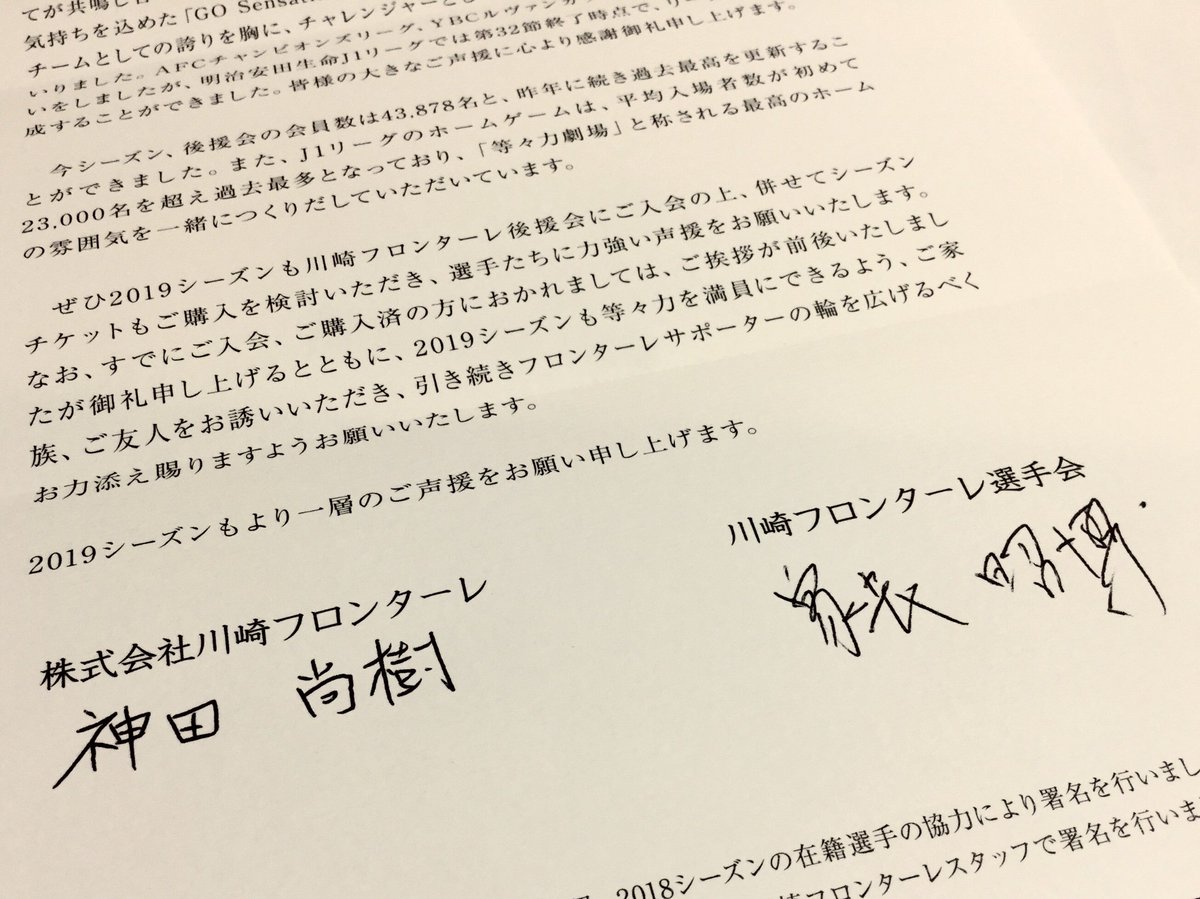 てが共鳴し合
気持ちを込めた「GO Sensati
チームとしての誇りを胸に、チャレンジャーとし
いりました。AFCチャンピオンズリーグ、YBCルヴァンカ
いをしましたが、明治安田生命J1リーグでは第32節終了時点で、リー
成することができました。皆様の大きなご声援に心より感謝御礼申し上げます。
今シーズン、後援会の会員数は43,878名と、昨年に続き過去最高を更新するこ
とができました。また、J1リーグのホームゲームは、平均入場者数が初めて
23,000名を超え過去最多となっており、「等々力劇場」と称される最高のホーム
の雰囲気を一緒につくりだしていただいています。
ぜひ2019シーズンも川崎フロンターレ後援会にご入会の上、併せてシーズン
チケットもご購入を検討いただき、選手たちに力強い声援をお願いいたします。
なお、すでにご入会、ご購入済の方におかれましては、ご挨拶が前後いたしまし
たが御礼申し上げるとともに、2019シーズンも等々力を満員にできるよう、ご家
族、ご友人をお誘いいただき、引き続きフロンターレサポーターの輪を広げるべく
お力添え賜りますようお願いいたします。
2019シーズンもより一層のご声援をお願い申し上げます。
川崎フロンターレ選手会
家長 昭博
株式会社川崎フロンターレ
神田 尚樹
2018シーズンの在籍選手の協力により署名を行いまし
崎フロンターレスタッフで署名を行いま